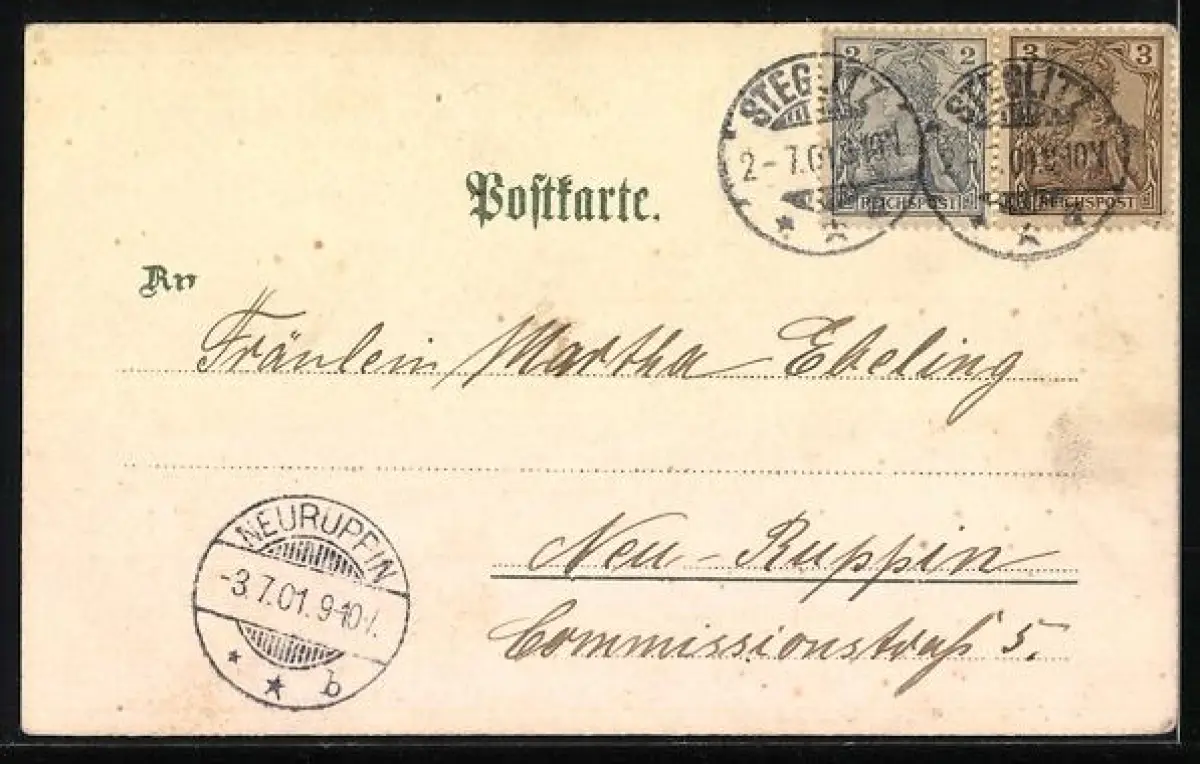 2 2 3 3
REICHSPOST REICHSPOST
STEGLITZ STEGLITZ
2-7.01.9-10V
Postkarte.
An
Fräulein Martha Ebeling
NEURUPPIN
-3.7.01.9-10V.
* * b
Neu-Ruppin
Commissionstraß 5.